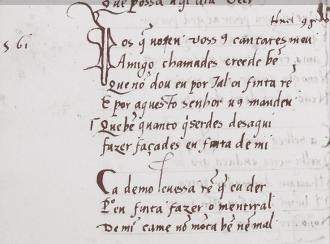 que possa
561
Pos q̃ voss q̃ cantares meu
Amigo chamades creede bẽ
Que nõ dou eu por tal en finta rẽ
E por aquesto senhor u9 mandeu
Que bẽ quanto q̃serdes desaqui
fazer façades en finta de mi
Ca demo levassa rẽ q̃ eu der
Por en finta fazer o mentiral
De mi ca me nõ monta bẽ nẽ mal